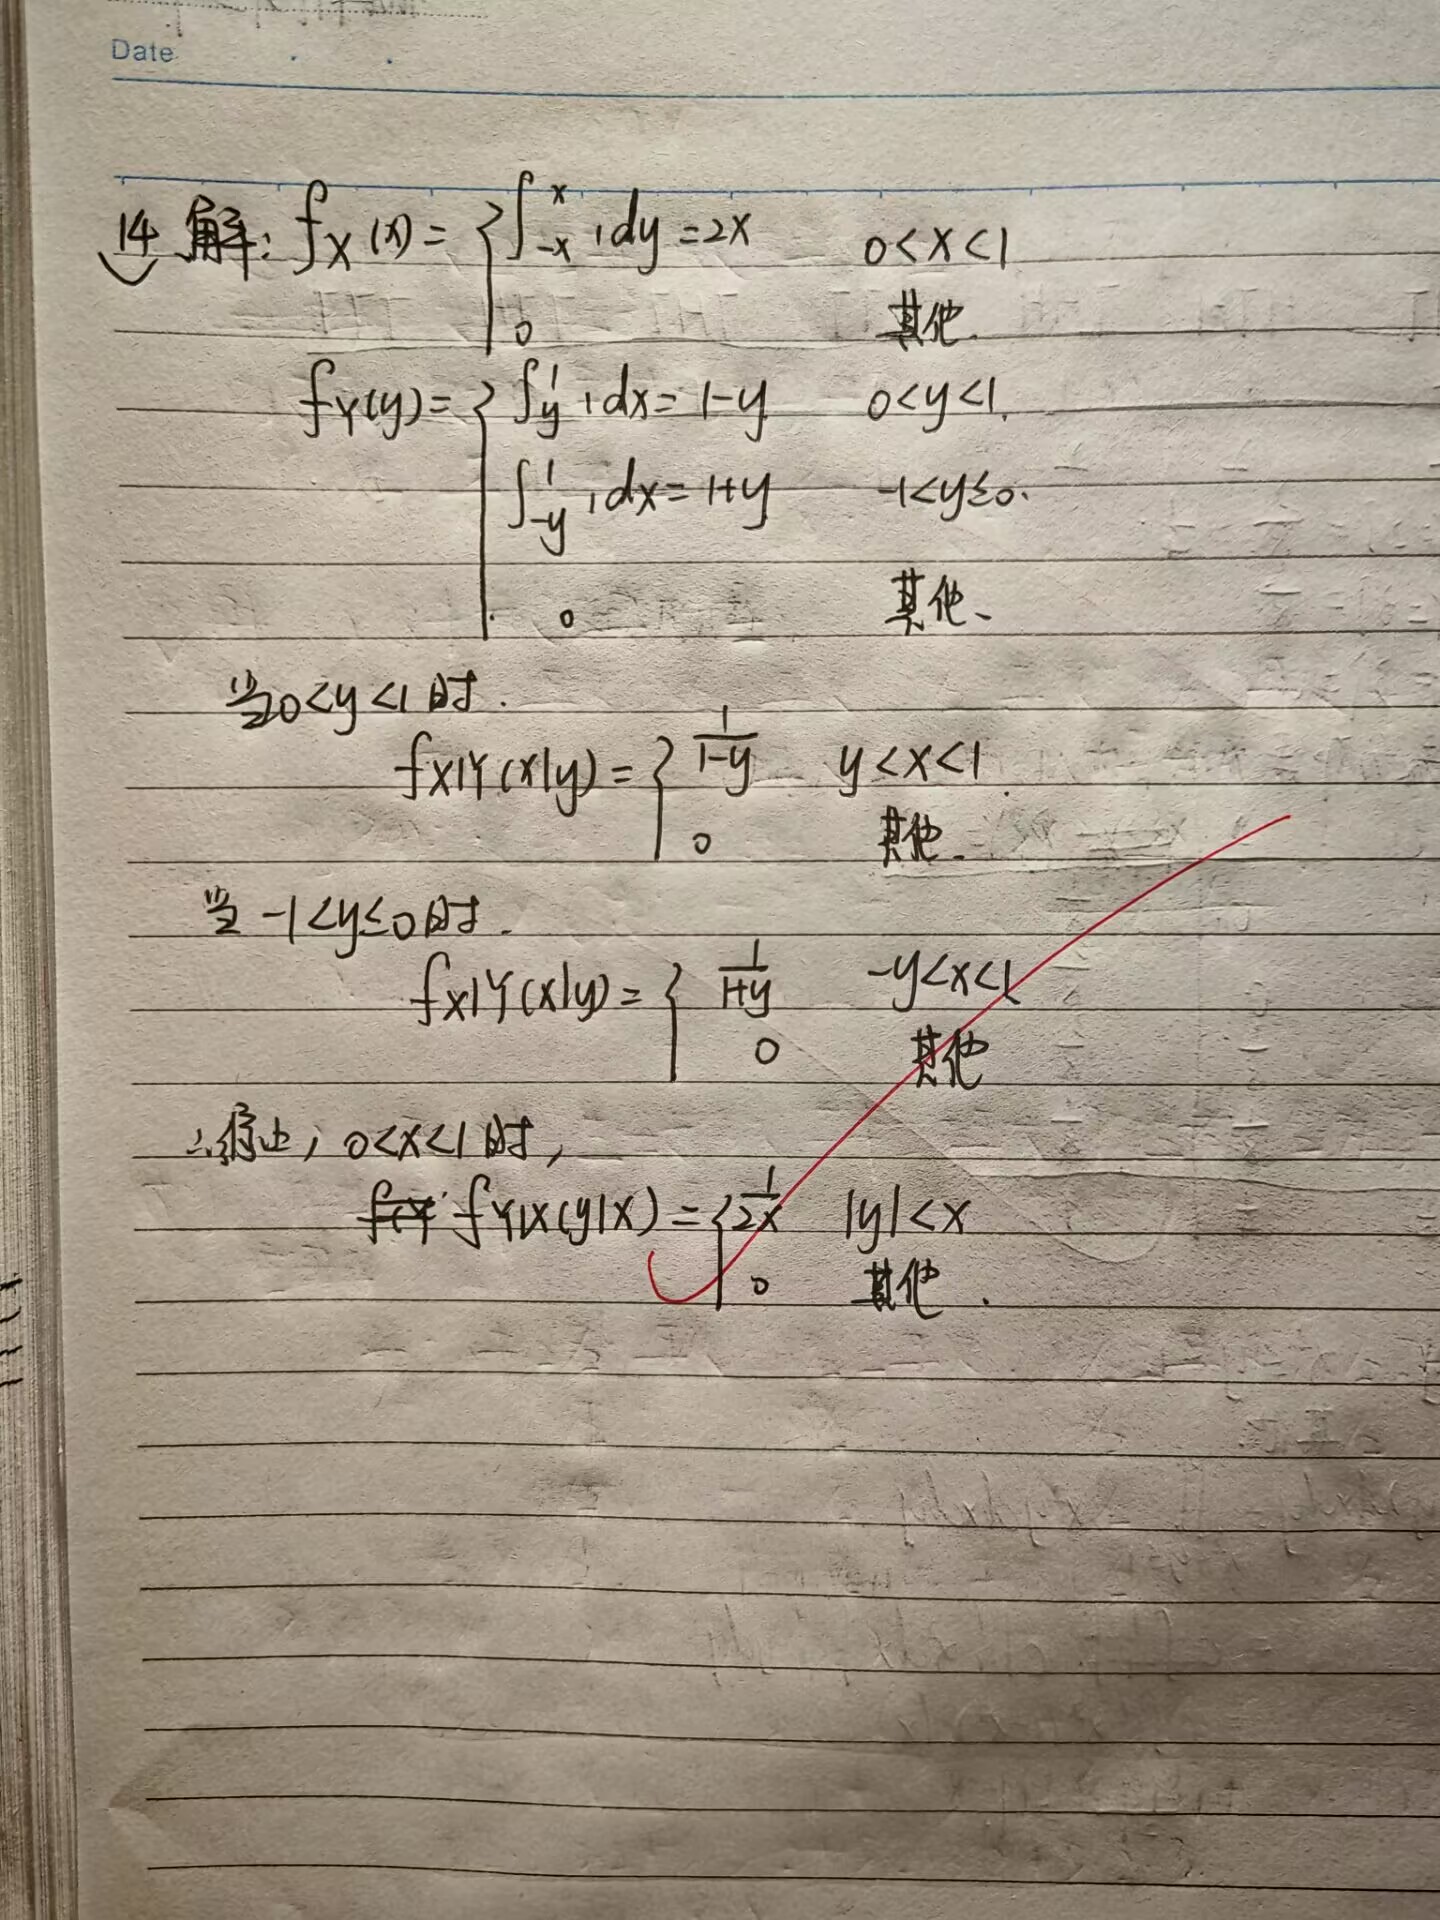 Date
14 解: fX(x) = { ∫_{-x}^{x} 1dy = 2x 0<x<1
0 其他.
fY(y) = { ∫_{y}^{1} 1dx = 1-y 0<y<1.
∫_{-y}^{1} 1dx = 1+y -1<y≤0.
0 其他、
当0<y<1时.
fX|Y(x|y) = { 1/(1-y) y<x<1
0 其他.
当-1<y≤0时.
fX|Y(x|y) = { 1/(1+y) -y<x<1
0 其他
0<x<1时,
fY|X(y|x) = { 1/(2x) |y|<x
0 其他.